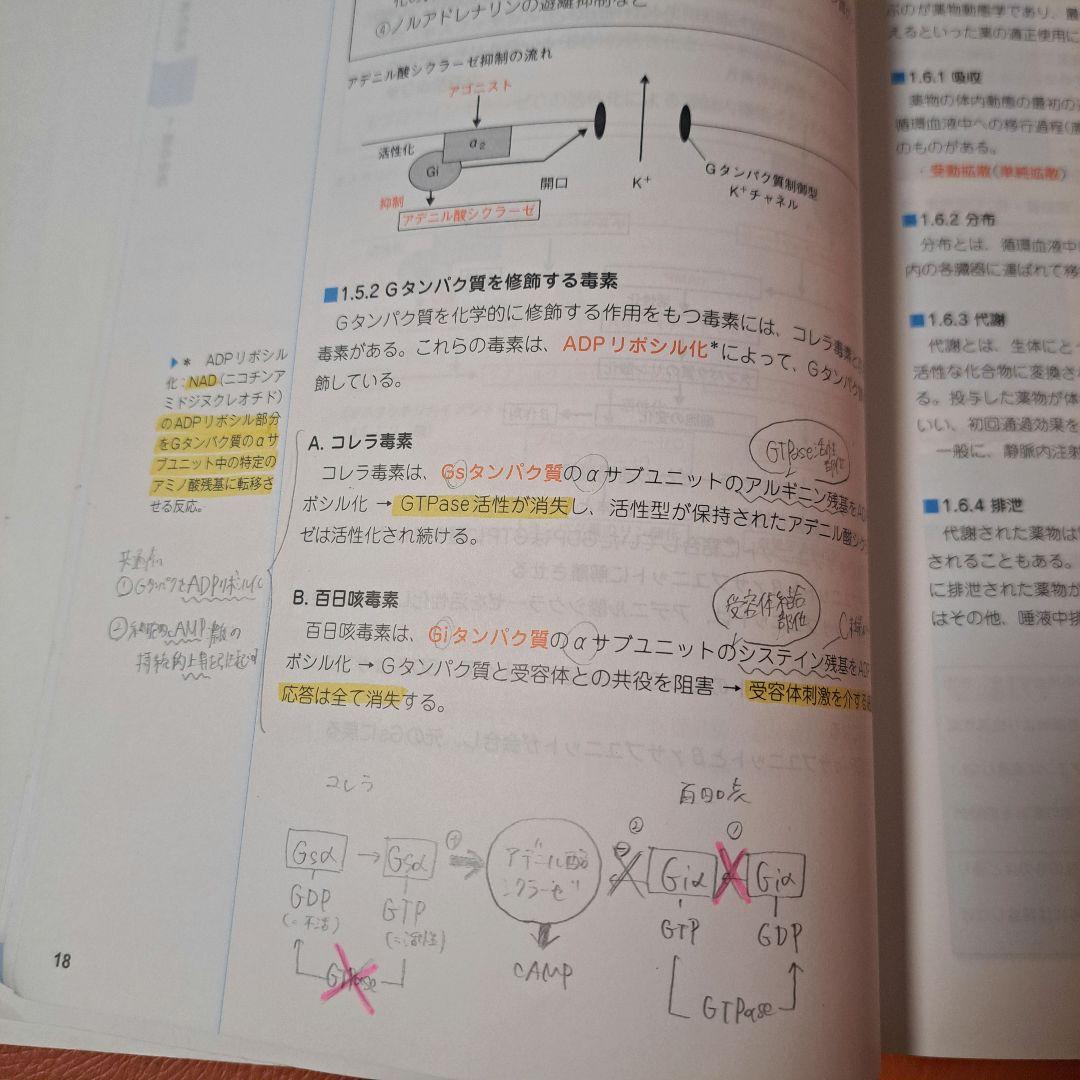 ④ノルアドレナリンの遊離抑制など
アデニル酸シクラーゼ抑制の流れ
アゴニスト
α₂
活性化
Gi
抑制
アデニル酸シクラーゼ
開口
K⁺
Gタンパク質制御型
K⁺チャネル
■1.5.2 Gタンパク質を修飾する毒素
Gタンパク質を化学的に修飾する作用をもつ毒素には、コレラ毒素と
毒素がある。これらの毒素は、ADPリボシル化*によって、Gタンパク
飾している。
▶* ADPリボシル
化：NAD（ニコチンア
ミドジヌクレオチド）
のADPリボシル部分
をGタンパク質のαサ
ブユニット中の特定の
アミノ酸残基に転移さ
せる反応。
A. コレラ毒素
GTPase活性
部位
コレラ毒素は、Gsタンパク質のαサブユニットのアルギニン残基をAD
ボシル化 → GTPase活性が消失し、活性型が保持されたアデニル酸シク
ゼは活性化され続ける。
共通点
①GタンパクをADPリボシル化
②細胞内cAMP濃度の
持続的上昇を引き起こす
B. 百日咳毒素
受容体結合
部位
百日咳毒素は、Giタンパク質のαサブユニットのシステイン残基をAD
ボシル化 → Gタンパク質と受容体との共役を阻害 → 受容体刺激を介する
応答は全て消失する。
コレラ
百日咳
Gsα → Gsα
GDP
(=不活)
GTP
(=活性)
GTPase
⊕
アデニル酸
シクラーゼ
cAMP
②
⊖
①
Giα
Giα
GTP
GDP
GTPase
18
ぶのが薬物動態学であり、最
えるといった薬の適正使用に
■1.6.1 吸収
薬物の体内動態の最初の
循環血液中への移行過程
のものがある。
・受動拡散（単純拡散）
■1.6.2 分布
分布とは、循環血液中
内の各臓器に運ばれて移
■1.6.3 代謝
代謝とは、生体にと
活性な化合物に変換さ
る。投与した薬物が体
いい、初回通過効果を
一般に、静脈内注射
■1.6.4 排泄
代謝された薬物は
されることもある。
に排泄された薬物が
はその他、唾液中排